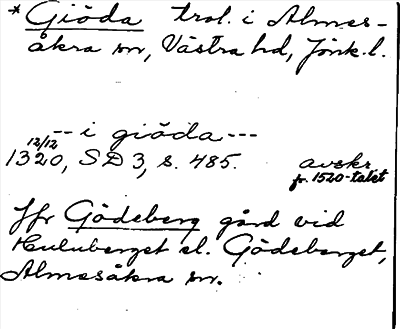 * Giöda trol. i Almes-
åkra sn, Västra hd, Jönk.l.
-- i giöda ---
12/12
1320, SD 3, s. 485. avskr.
fr. 1520-talet
Jfr Gödeberg gård vid
Huluberget el. Gödeberget,
Almesåkra sn.